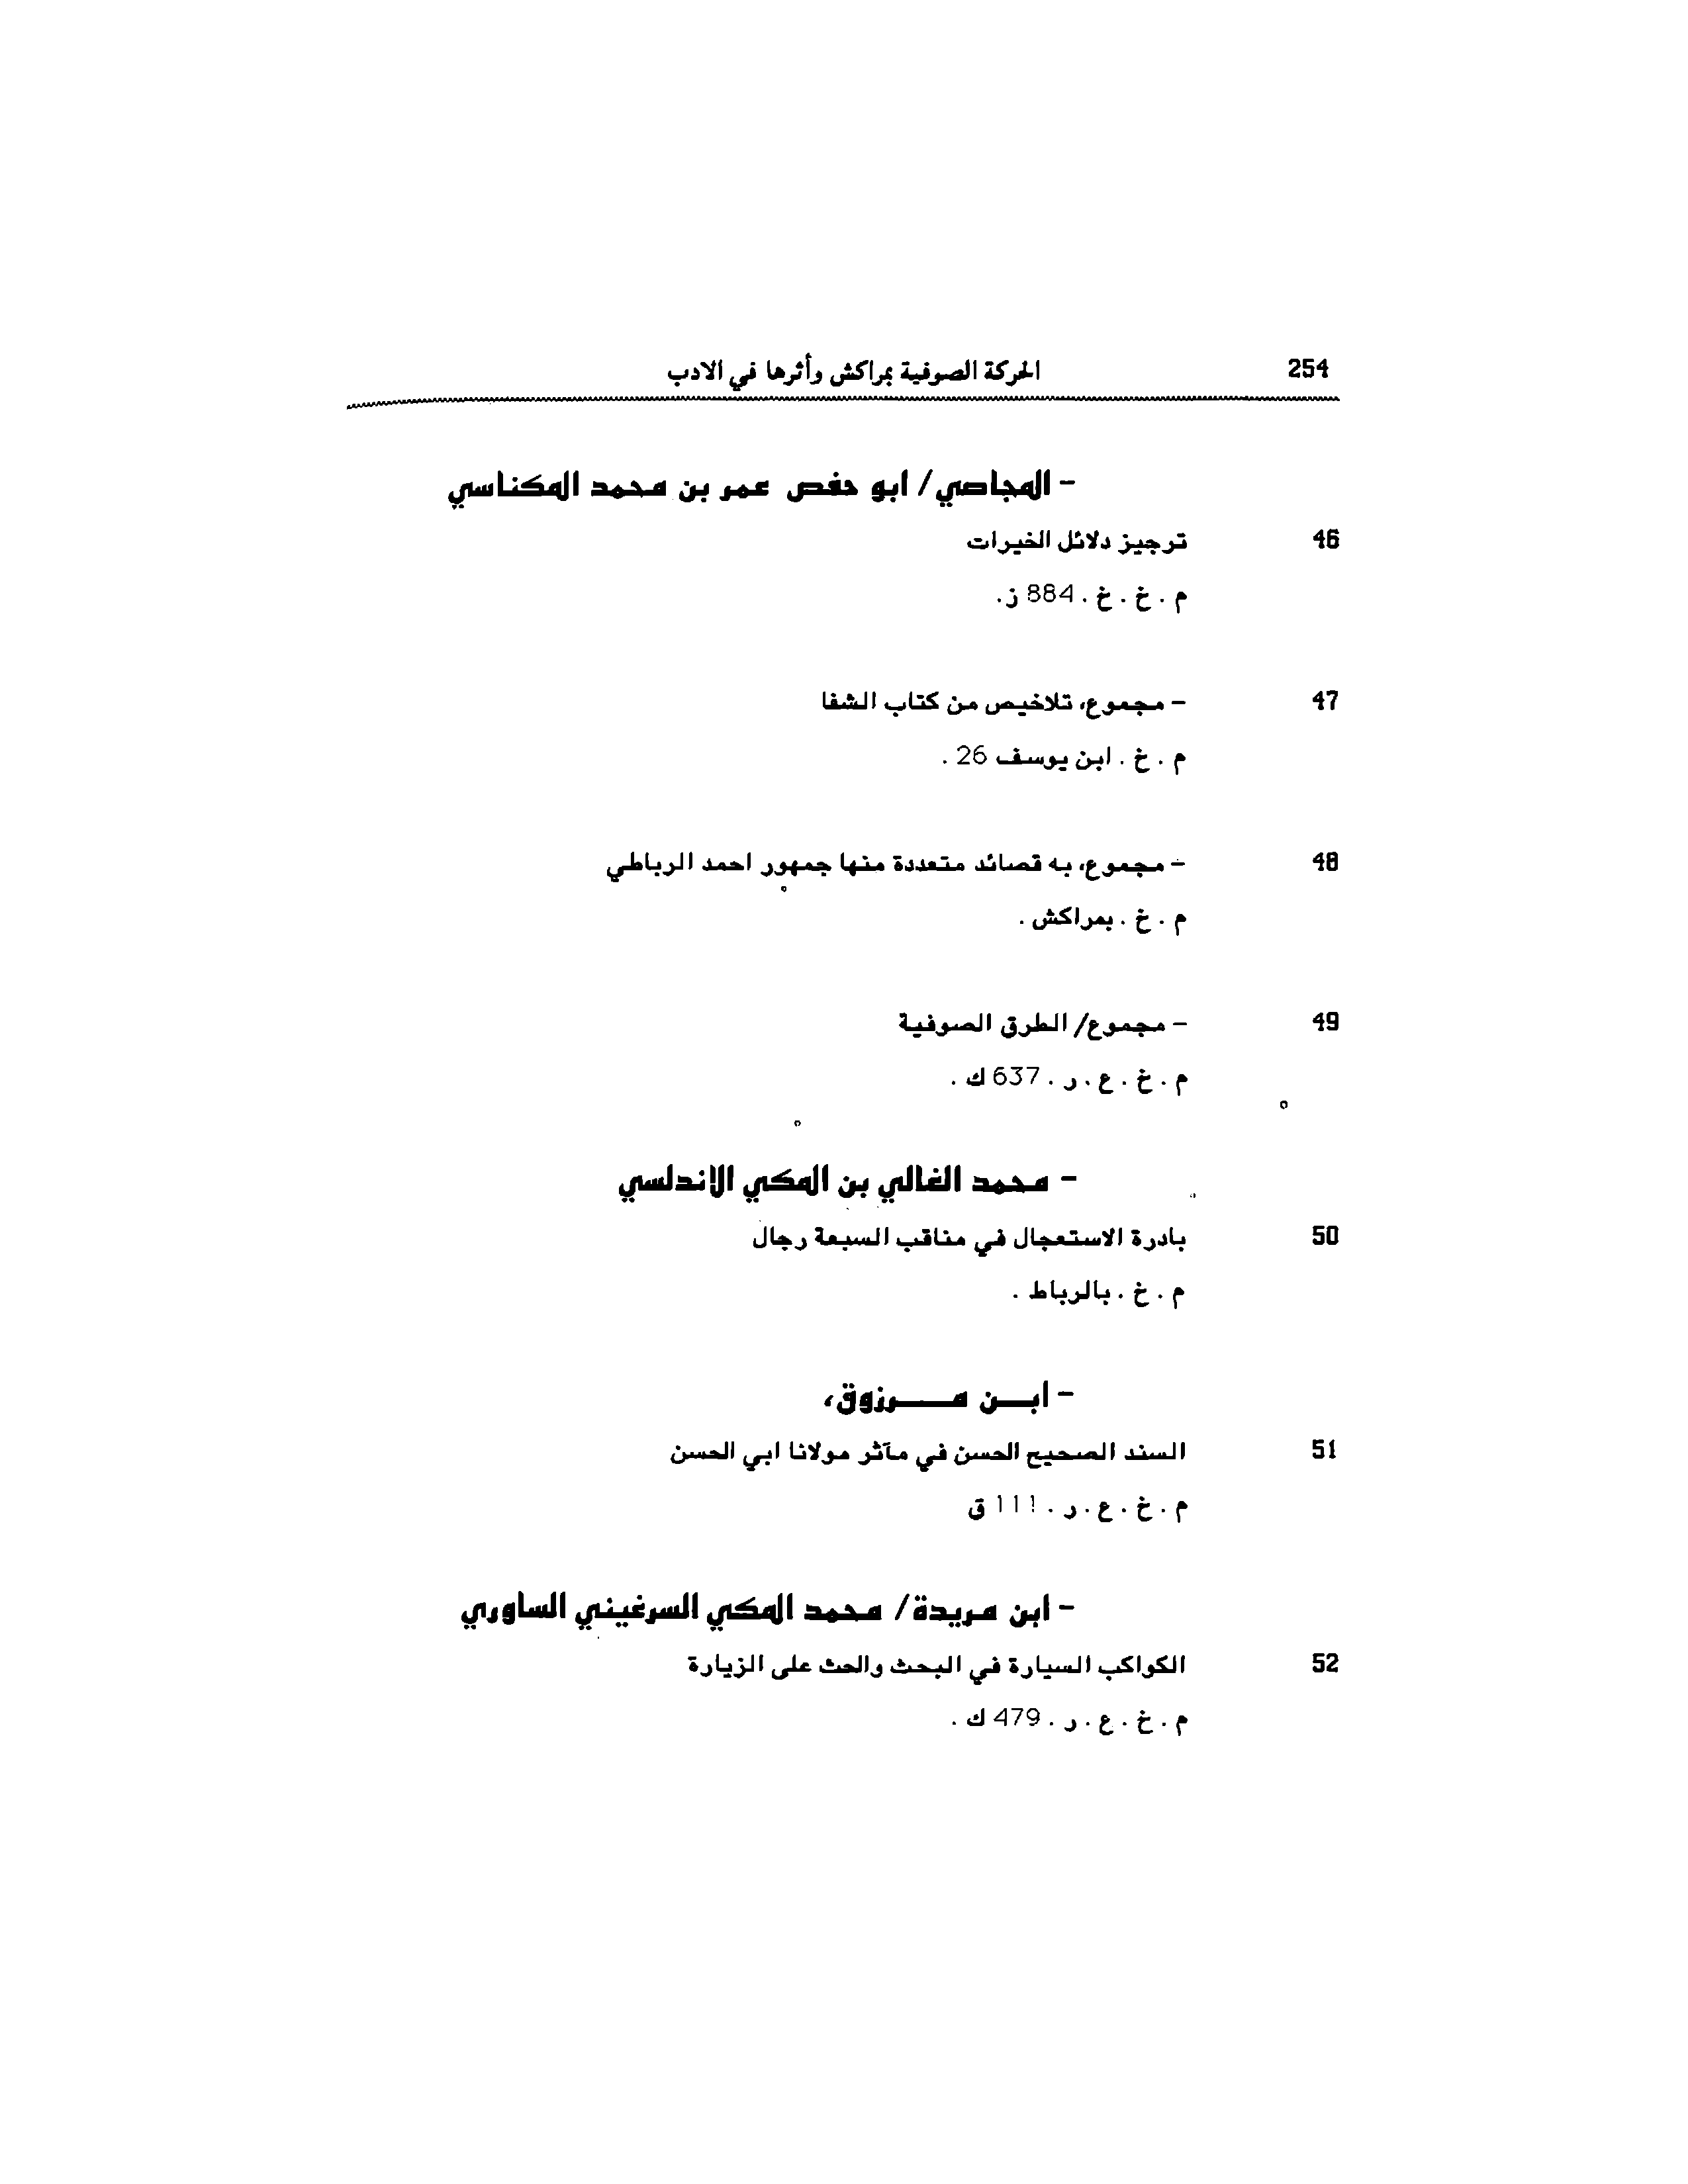 254 الحركة الصوفية بمراكش وأثرها في الادب
- المجاصي/ ابو حفص عمر بن محمد المكناسي
46 ترجيز دلائل الخيرات
م . خ . خ . 884 ز.
47 - مجموع، تلاخيص من كتاب الشفا
م . خ . ابن يوسف 26 .
48 - مجموع، به قصائد متعددة منها جمهور احمد الرباطي
م . خ . بمراكش .
49 - مجموع/ الطرق الصوفية
م . خ . ع . ر . 637 ك .
- محمد الغالي بن المكي الاندلسي
50 بادرة الاستعجال في مناقب السبعة رجال
م . خ . بالرباط .
- ابـــن مــــرزوق،
51 السند الصحيح الحسن في مآثر مولانا ابي الحسن
م . خ . ع . ر . 111 ق
- ابن مريدة/ محمد المكي السرغيني الساوري
52 الكواكب السيارة في البحث والحث على الزيارة
م . خ . ع . ر . 479 ك .